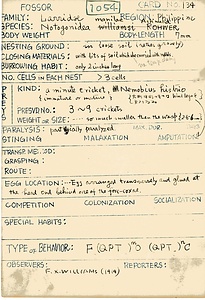 FOSSOR 1054 CARD NO. 134
FAMILY: Larridae REGION: Philippine
SPECIES: Notogonidea williamsi ROHWER,
BODY WEIGHT BODY LENGTH 7mm
NESTING GROUND: in loose soil
CLOSING MATERIALS: with bits of soil which
BURROWING HABIT: only 2 inches long
NO. CELLS IN EACH NEST >3 cells
PREYS
KIND: a minute cricket, Nemobius histrio
(immature or mature)
PRESV. NO.: 3~9 crickets
WEIGHT OR SIZE: so much smaller than the wasp
PARALYSIS: partially paralyzed
STINGING MALAXATION AMPUTATION
TRANSP. METHOD:
GRASPING:
ROUTE:
EGG LOCATION: Egg arranged transversely and glued at
the hind end behind one of the fore-coxae.
COMPETITION COLONIZATION SOCIALIZATION
SPECIAL HABITS:
TYPE OF BEHAVIOR: F (QPT)ᵐO (QPT,)ᵐC
OBSERVERS: REPORTERS:
F. X. WILLIAMS (1919)